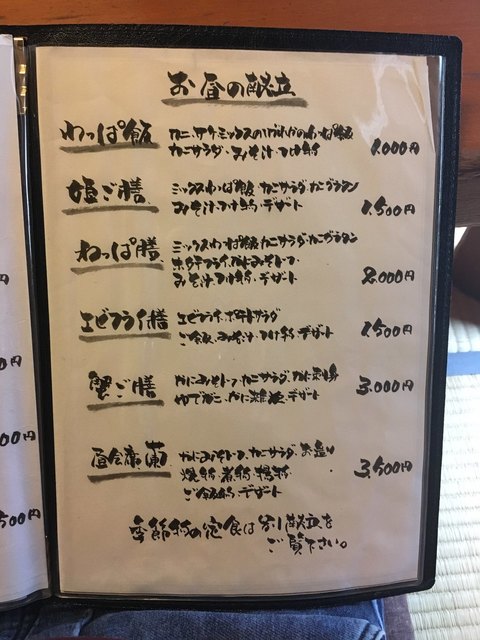 お昼の献立
わっぱ飯 カニ、サケ、ミックスのいずれかのわっぱ飯
カニサラダ・みそ汁・つけ物 1,000円
姫ご膳 ミックスわっぱ飯・カニサラダ・カニグラタン
みそ汁・つけ物・デザート 1,500円
わっぱ膳 ミックスわっぱ飯・カニサラダ・カニグラタン
ホタテフライ・カニみそトーフ・
みそ汁・つけ物・デザート 2,000円
エビフライ膳 エビフライ・ポテトサラダ
ご飯・みそ汁・つけ物・デザート 1,500円
蟹ご膳 かにみそトーフ・カニサラダ・かに
かに雑炊・デザート 3,000円
昼会席 かにみそトーフ・カニサラダ・お造り
焼物・煮物・揚物
ご飯物・デザート 3,500円
季節物の定食は別献立を
ご覧下さい。
円
0円
00円
500円